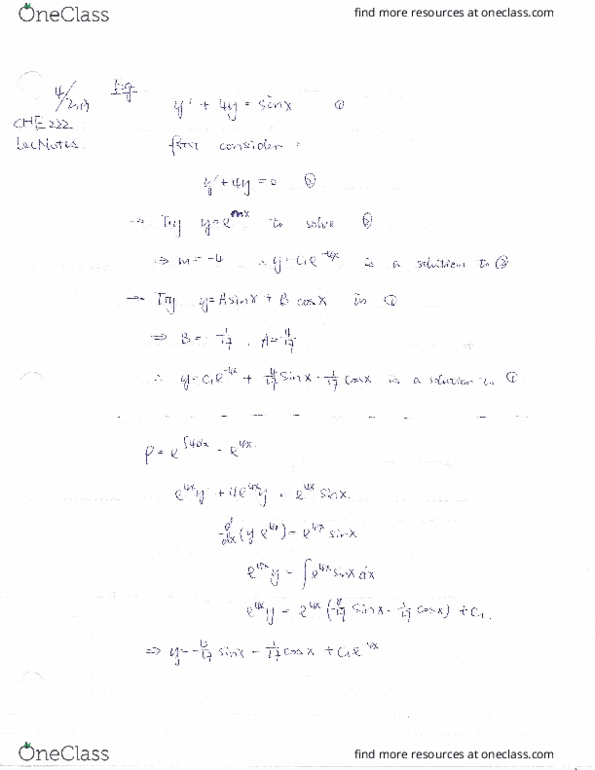 OneClass
find more resources at oneclass.com
4/2017
CHE222
LecNotes.
Eg.
y' + 4y = sinx ①
first consider :
y' + 4y = 0 ②
→ Try y = e^{mx} to solve ②
⇒ m = -4 ∴ y = C₁e^{-4x} is a solution to ②
→ Try y = A sinx + B cosx in ①
⇒ B = -1/17 , A = 4/17
∴ y = C₁e^{-4x} + 4/17 sinx - 1/17 cosx is a solution to ①
ρ = e^{∫4dx} = e^{4x}
e^{4x}y' + 4e^{4x}y = e^{4x} sinx.
d/dx (y e^{4x}) = e^{4x} sinx
e^{4x}y = ∫e^{4x} sinx dx
e^{4x}y = e^{4x} (4/17 sinx - 1/17 cosx) + C₁.
⇒ y = 4/17 sinx - 1/17 cosx + C₁e^{-4x}
OneClass
find more resources at oneclass.com